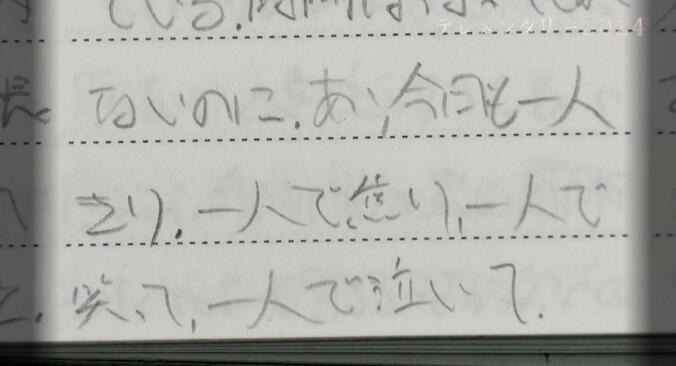 ている。
テレメンタリー2024
ないのに、あぁ今日も一人
きり、一人で焦り、一人で
笑って、一人で泣いて。